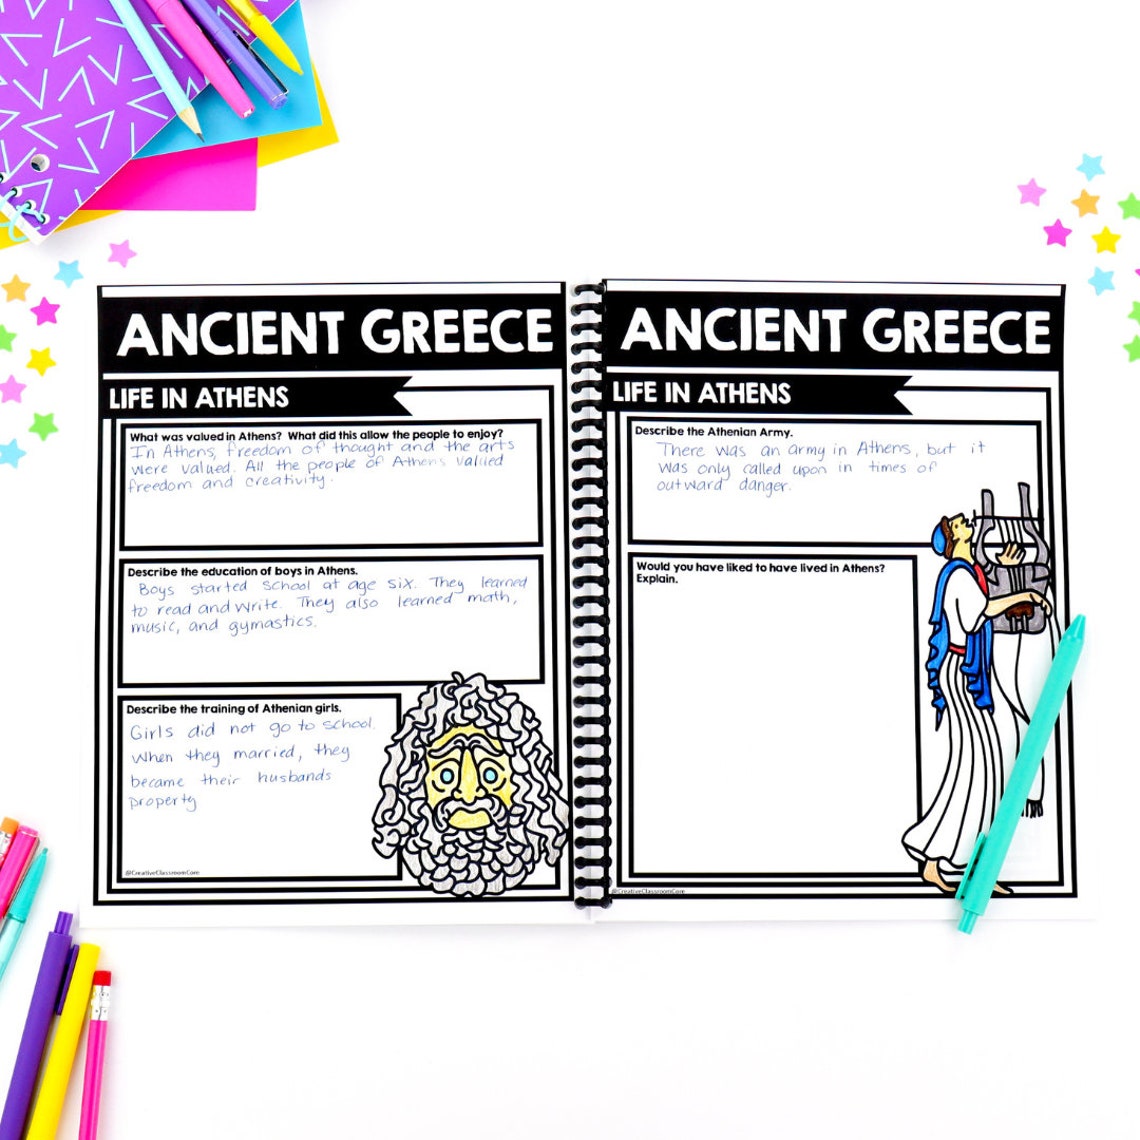 ANCIENT GREECE
LIFE IN ATHENS
What was valued in Athens? What did this allow the people to enjoy?
In Athens, freedom of thought and the arts
were valued. All the people of Athens valued
freedom and creativity.
Describe the education of boys in Athens.
Boys started school at age six. They learned
to read and write. They also learned math,
music, and gymastics.
Describe the training of Athenian girls.
Girls did not go to school.
When they married, they
became their husbands
property
@CreativeClassroomCore
ANCIENT GREECE
LIFE IN ATHENS
Describe the Athenian Army.
There was an army in Athens, but it
was only called upon in times of
outward danger.
Would you have liked to have lived in Athens?
Explain.
@CreativeClassroomCore